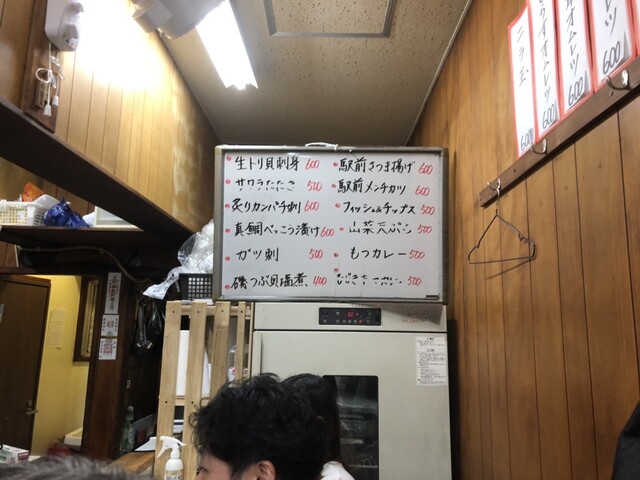 生トリ貝刺身 600
サワラたたき 500
炙りカンパチ刺 600
真鯛べっこう漬け 600
ガツ刺 500
磯つぶ貝塩煮 400
駅前さつま揚げ 600
駅前メンチカツ 600
フィッシュ&チップス 500
山菜天ぷら 500
もつカレー 500
500
ニラ玉 600
オムレツ 600
オムレツ 600
600